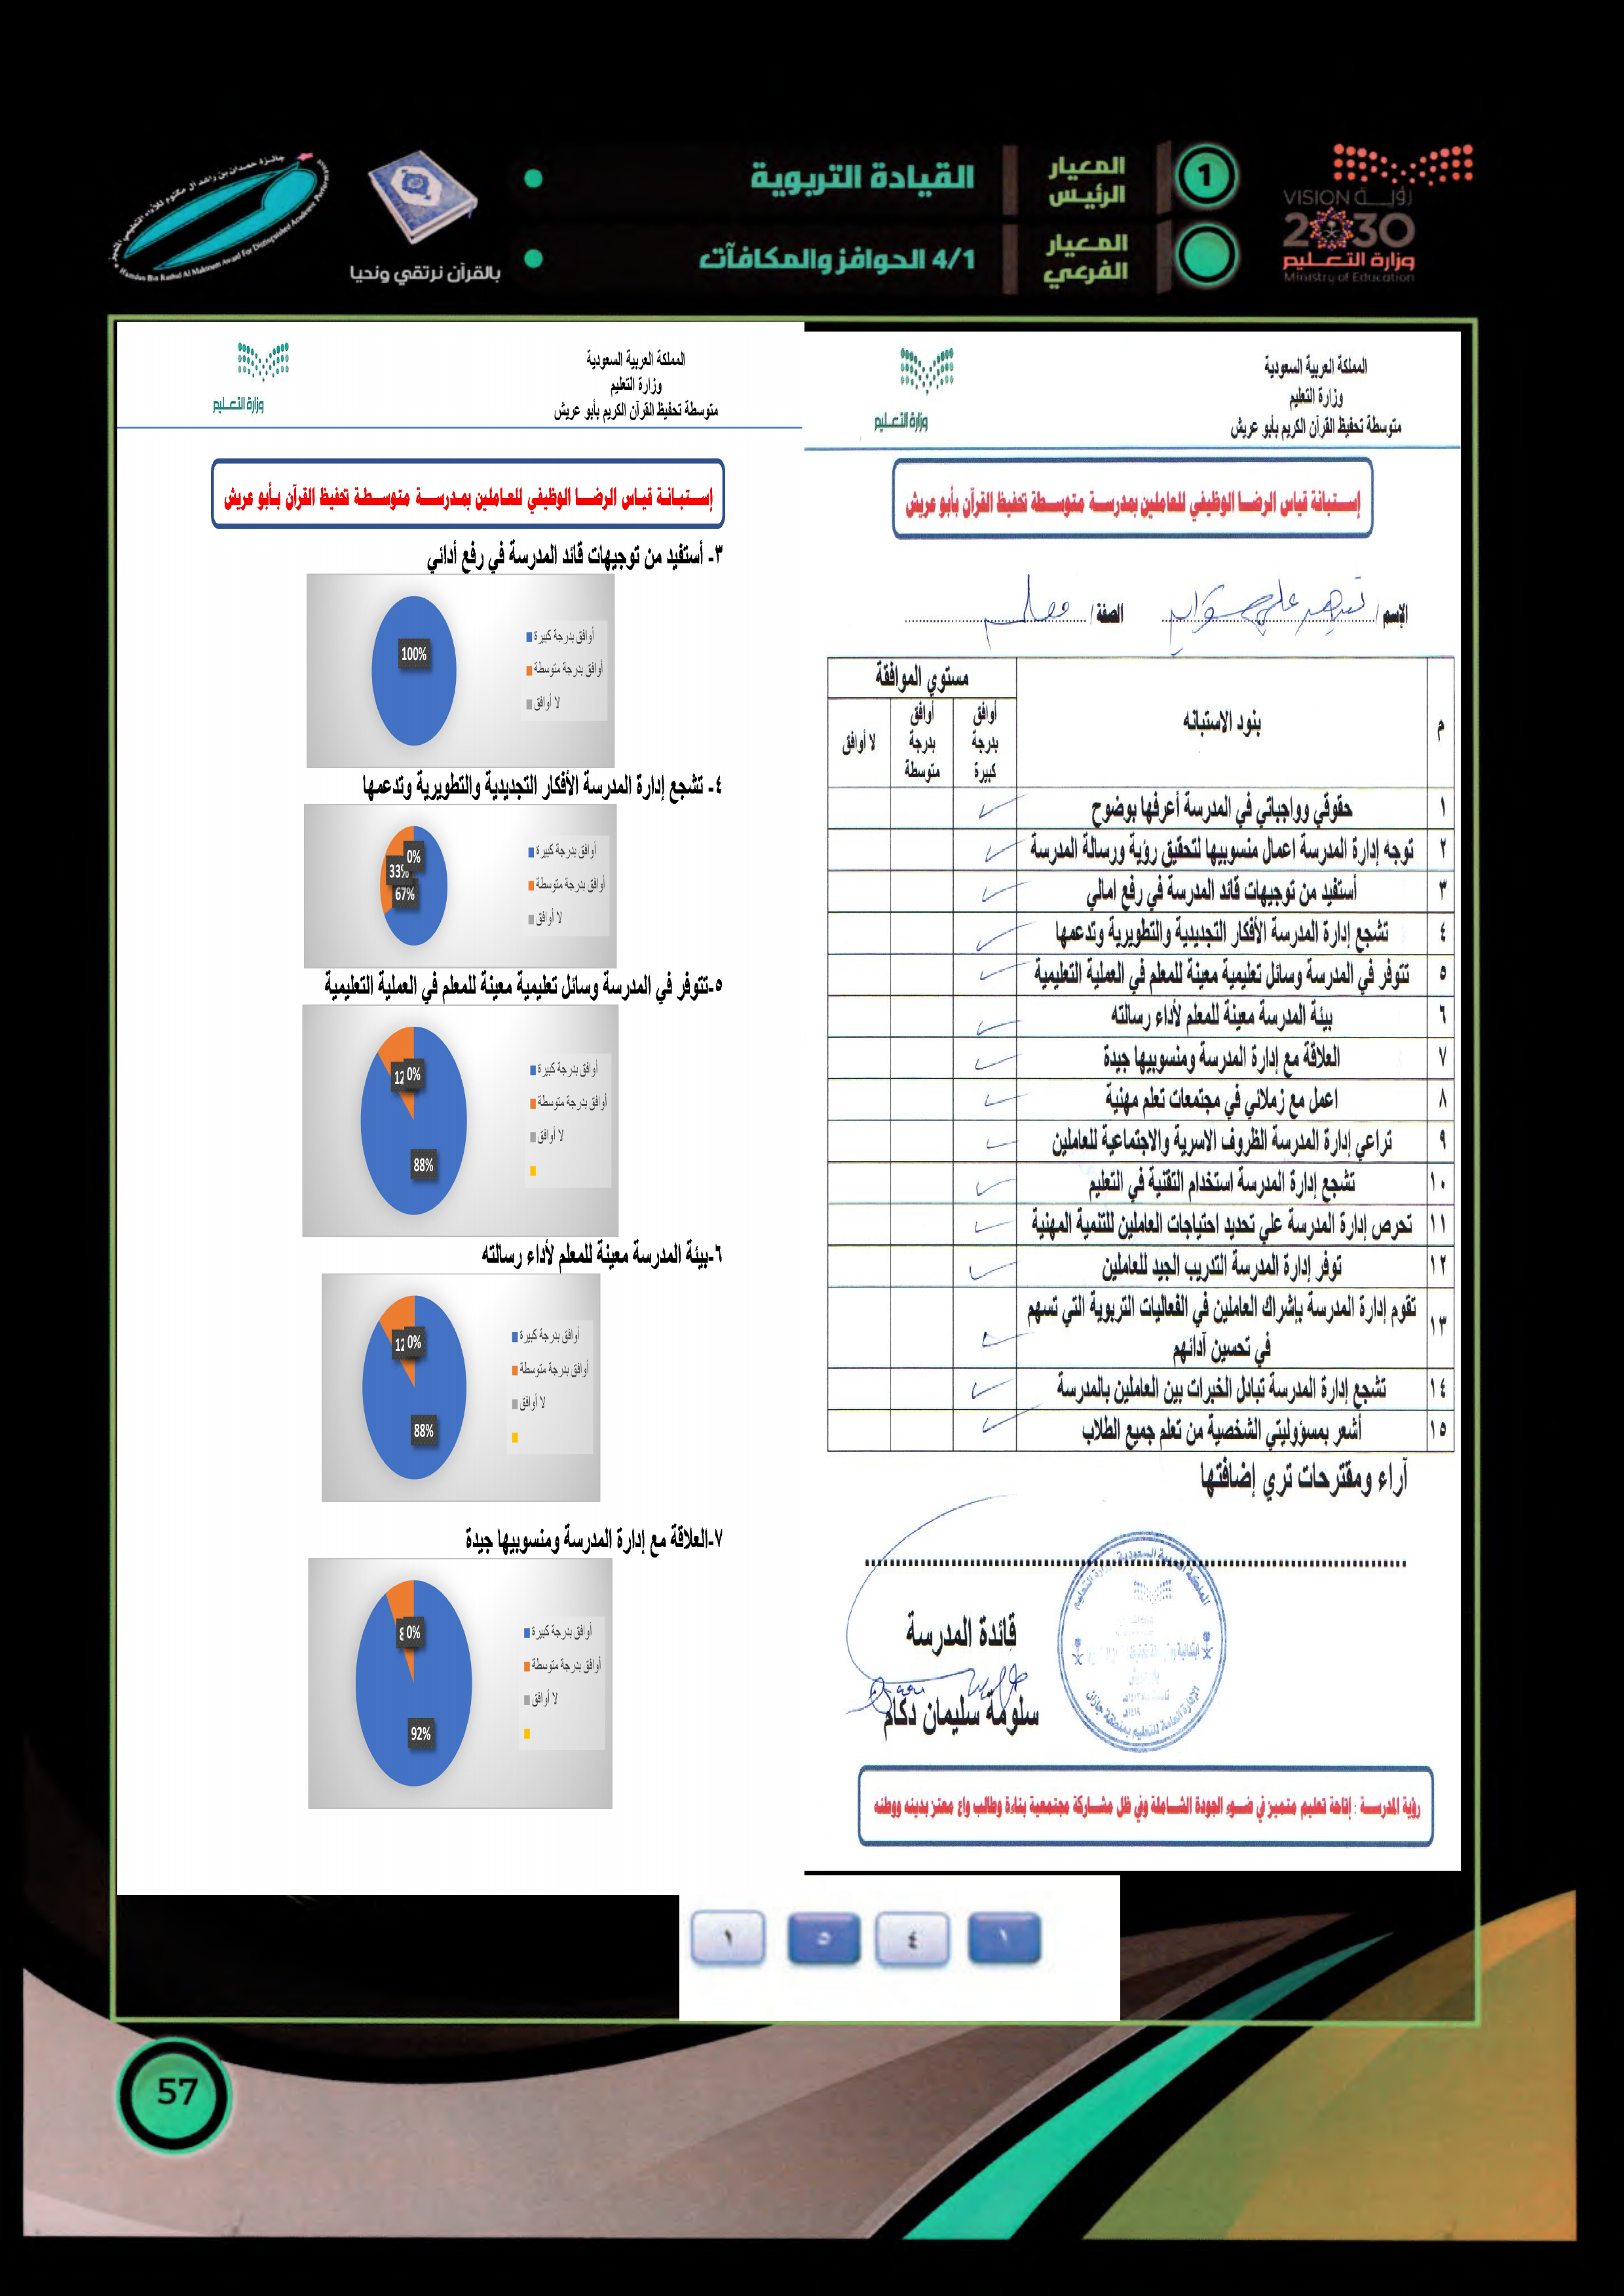 جائزة حمدان بن راشد آل مكتوم للأداء التعليمي المتميز
Hamdan Bin Rashid Al Maktoum Award For Distinguished Academic Performance
بالقرآن نرتقي ونحيا
القيادة التربوية
المعيار الرئيس
1
4/1 الحوافز والمكافآت
المعيار الفرعي
VISION رؤيـــة
2030
وزارة التعـليم
Ministry of Education
المملكة العربية السعودية
وزارة التعليم
متوسطة تحفيظ القرآن الكريم بأبو عريش
وزارة التعـليم
إستبانة قياس الرضا الوظيفي للعاملين بمدرسة متوسطة تحفيظ القرآن بأبو عريش
الإسم /
الصفة / معلم
م
بنود الاستبانه
مستوي الموافقة
أوافق بدرجة كبيرة
أوافق بدرجة متوسطة
لا أوافق
١ حقوقي وواجباتي في المدرسة أعرفها بوضوح
٢ توجه إدارة المدرسة اعمال منسوبيها لتحقيق رؤية ورسالة المدرسة
٣ أستفيد من توجيهات قائد المدرسة في رفع امالي
٤ تشجع إدارة المدرسة الأفكار التجديدية والتطويرية وتدعمها
٥ تتوفر في المدرسة وسائل تعليمية معينة للمعلم في العملية التعليمية
٦ بيئة المدرسة معينة للمعلم لأداء رسالته
٧ العلاقة مع إدارة المدرسة ومنسوبيها جيدة
٨ اعمل مع زملائي في مجتمعات تعلم مهنية
٩ تراعي إدارة المدرسة الظروف الاسرية والاجتماعية للعاملين
١٠ تشجع إدارة المدرسة استخدام التقنية في التعليم
١١ تحرص إدارة المدرسة علي تحديد احتياجات العاملين للتنمية المهنية
١٢ توفر إدارة المدرسة التدريب الجيد للعاملين
١٣ تقوم إدارة المدرسة بإشراك العاملين في الفعاليات التربوية التي تسهم
في تحسين آدائهم
١٤ تشجع إدارة المدرسة تبادل الخبرات بين العاملين بالمدرسة
١٥ أشعر بمسؤوليتي الشخصية من تعلم جميع الطلاب
آراء ومقترحات تري إضافتها
قائدة المدرسة
سلومة سليمان دكام
المملكة العربية السعودية وزارة التعليم
الإدارة العامة للتعليم بمنطقة جازان
رؤية المدرسة : إتاحة تعليم متميز في ضوء الجودة الشاملة وفي ظل مشاركة مجتمعية بناءة وطالب واع معتز بدينه ووطنه
المملكة العربية السعودية
وزارة التعليم
متوسطة تحفيظ القرآن الكريم بأبو عريش
وزارة التعـليم
إستبانة قياس الرضا الوظيفي للعاملين بمدرسة متوسطة تحفيظ القرآن بأبو عريش
٣- أستفيد من توجيهات قائد المدرسة في رفع أدائي
100%
أوافق بدرجة كبيرة
أوافق بدرجة متوسطة
لا أوافق
٤- تشجع إدارة المدرسة الأفكار التجديدية والتطويرية وتدعمها
0%
33%
67%
أوافق بدرجة كبيرة
أوافق بدرجة متوسطة
لا أوافق
٥-تتوفر في المدرسة وسائل تعليمية معينة للمعلم في العملية التعليمية
12
0%
88%
أوافق بدرجة كبيرة
أوافق بدرجة متوسطة
لا أوافق
٦-بيئة المدرسة معينة للمعلم لأداء رسالته
12
0%
88%
أوافق بدرجة كبيرة
أوافق بدرجة متوسطة
لا أوافق
٧-العلاقة مع إدارة المدرسة ومنسوبيها جيدة
8
0%
92%
أوافق بدرجة كبيرة
أوافق بدرجة متوسطة
لا أوافق
١ ٤ ٥ ١
57